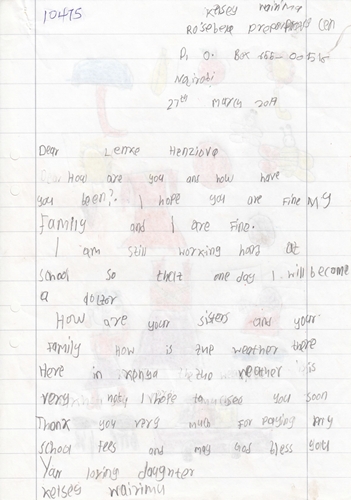 10475
Kelsey Wairimu
Rosebera preparatory Cen
P. O. Box
Nairobi
27th March 2019
Dear Lenke
How are you and how have
you been? I hope you are Fine My
Family and I are Fine.
I am still working hard at
school so that one day I will become
a doctor
How are your sisters and your
Family How is the weather there
Here in Kenya the weather is
very hot I hope to see you soon
Thank you very much For paying my
school Fees and may God bless you
Your loving daughter
Kelsey Wairimu